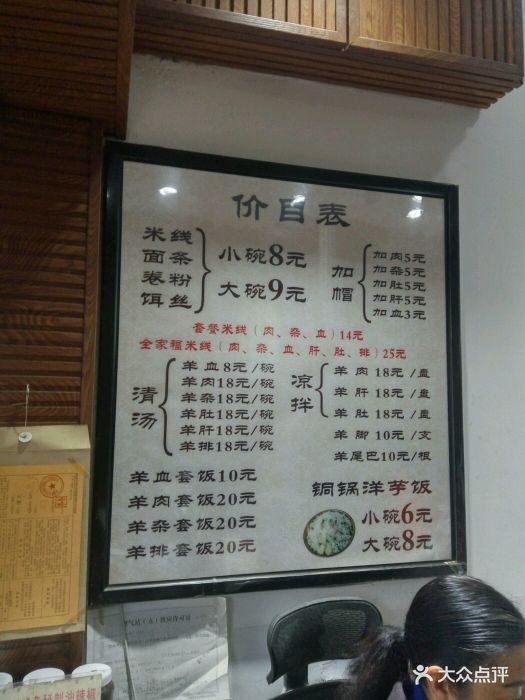 价目表
米线
面条
卷粉
饵丝
小碗8元
大碗9元
加帽
加肉5元
加杂5元
加肚5元
加肝5元
加血3元
套餐米线（肉、杂、血）14元
全家福米线（肉、杂、血、肝、肚、排）25元
清汤
羊血8元/碗
羊肉18元/碗
羊杂18元/碗
羊肚18元/碗
羊肝18元/碗
羊排18元/碗
凉拌
羊肉18元/盘
羊肝18元/盘
羊肚18元/盘
羊脚10元/支
羊尾巴10元/根
羊血套饭10元
羊肉套饭20元
羊杂套饭20元
羊排套饭20元
铜锅洋芋饭
小碗6元
大碗8元
秘制油辣椒
大众点评